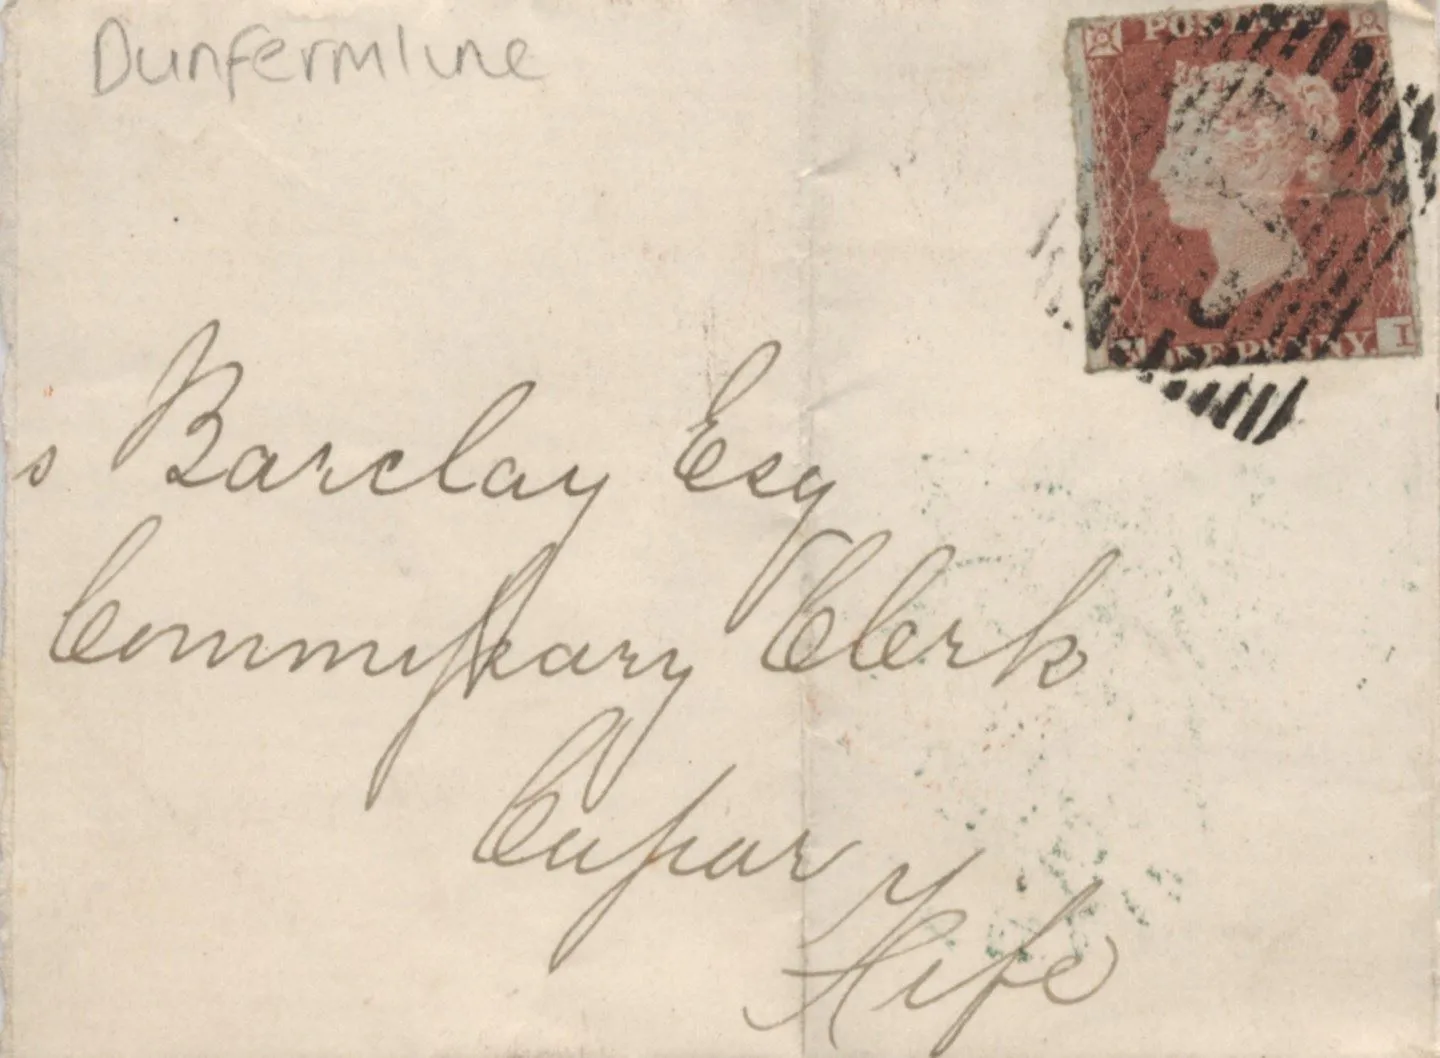 Dunfermline
POSTAGE
ONE PENNY
I
s Barclay Esq
Commissary Clerk
Cupar
Fife